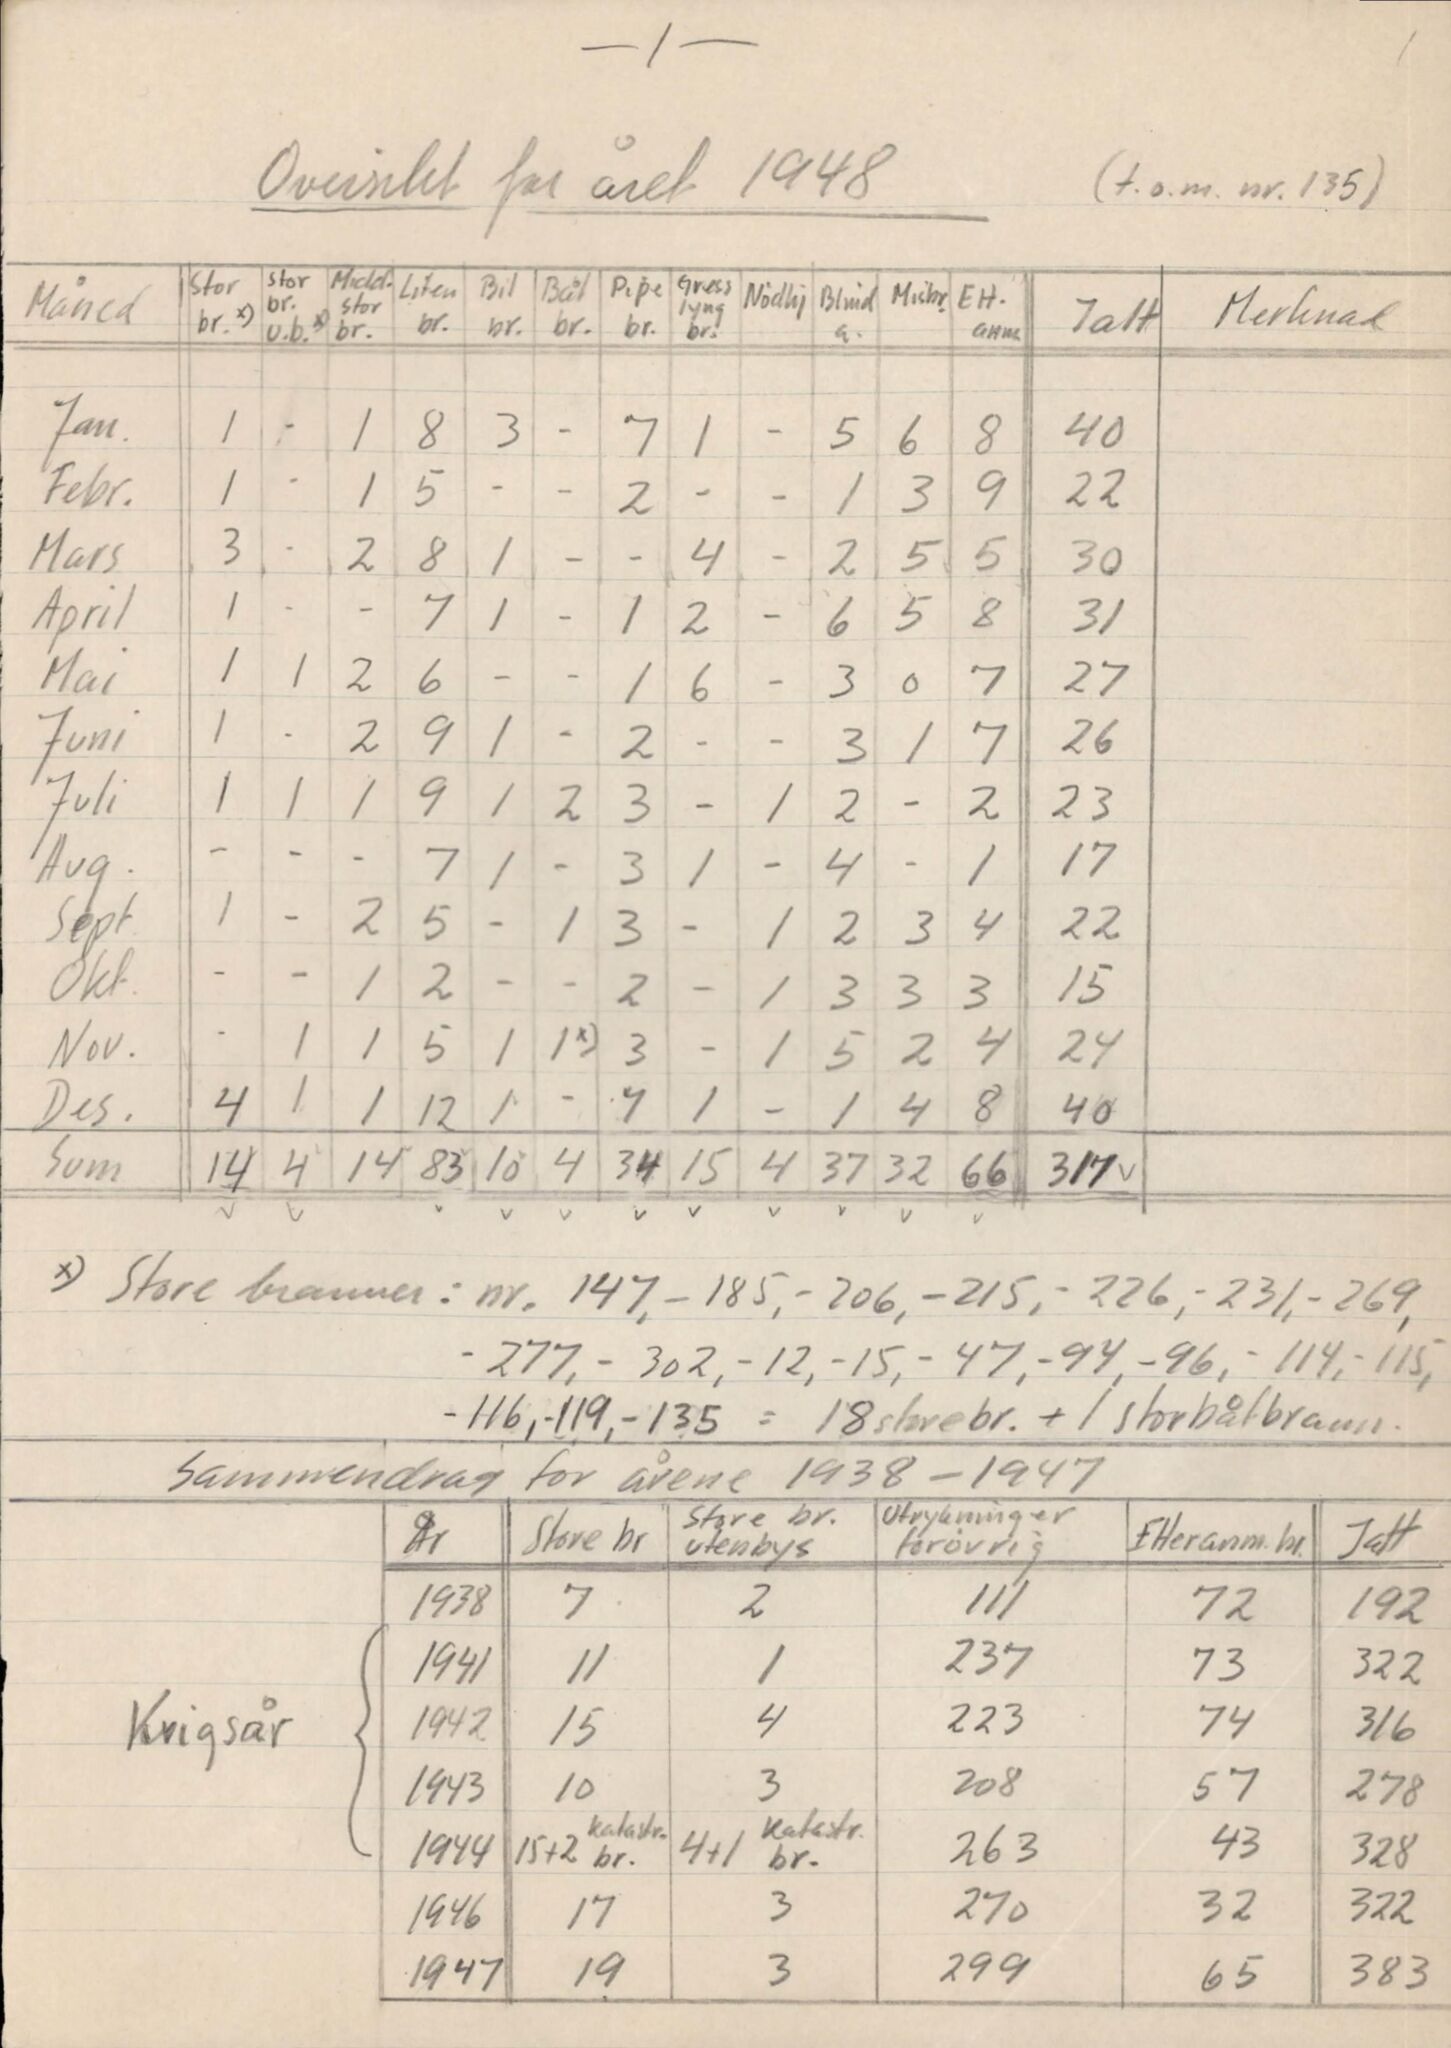 —1—
1
Oversikt for året 1948 (t.o.m. nr. 135)
Måned Stor br. x) stor br. u.b. x) Midd. stor br. Liten br. Bil br. Båt br. Pipe br. Gress lyng br. Nödhj Blind a. Misbr. Ett. anm. Ialt Merknad
Jan. 1 - 1 8 3 - 7 1 - 5 6 8 40
Febr. 1 - 1 5 - - 2 - - 1 3 9 22
Mars 3 - 2 8 1 - - 4 - 2 5 5 30
April 1 - - 7 1 - 1 2 - 6 5 8 31
Mai 1 1 2 6 - - 1 6 - 3 0 7 27
Juni 1 - 2 9 1 - 2 - - 3 1 7 26
Juli 1 1 1 9 1 2 3 - 1 2 - 2 23
Aug. - - - 7 1 - 3 1 - 4 - 1 17
Sept. 1 - 2 5 - 1 3 - 1 2 3 4 22
Okt. - - 1 2 - - 2 - 1 3 3 3 15
Nov. - 1 1 5 1 1x) 3 - 1 5 2 4 24
Des. 4 1 1 12 1 - 7 1 - 1 4 8 40
Sum 14 4 14 83 10 4 34 15 4 37 32 66 317 v
v v v v v v v v v v v
x) Store branner: nr. 147, - 185, - 206, - 215, - 226, - 231, - 269,
- 277, - 302, - 12, - 15, - 47, - 94, - 96, - 114, - 115,
- 116, - 119, - 135 = 18 store br. + 1 storbåtbrann.
Sammendrag for årene 1938 - 1947
År Store br Store br. utenbys Utrykninger forövrig Etteranm. br. Ialt
1938 7 2 111 72 192
1941 11 1 237 73 322
Krigsår 1942 15 4 223 74 316
1943 10 3 208 57 278
1944 15+2 katastr. br. 4+1 katastr. br. 263 43 328
1946 17 3 270 32 322
1947 19 3 299 65 383